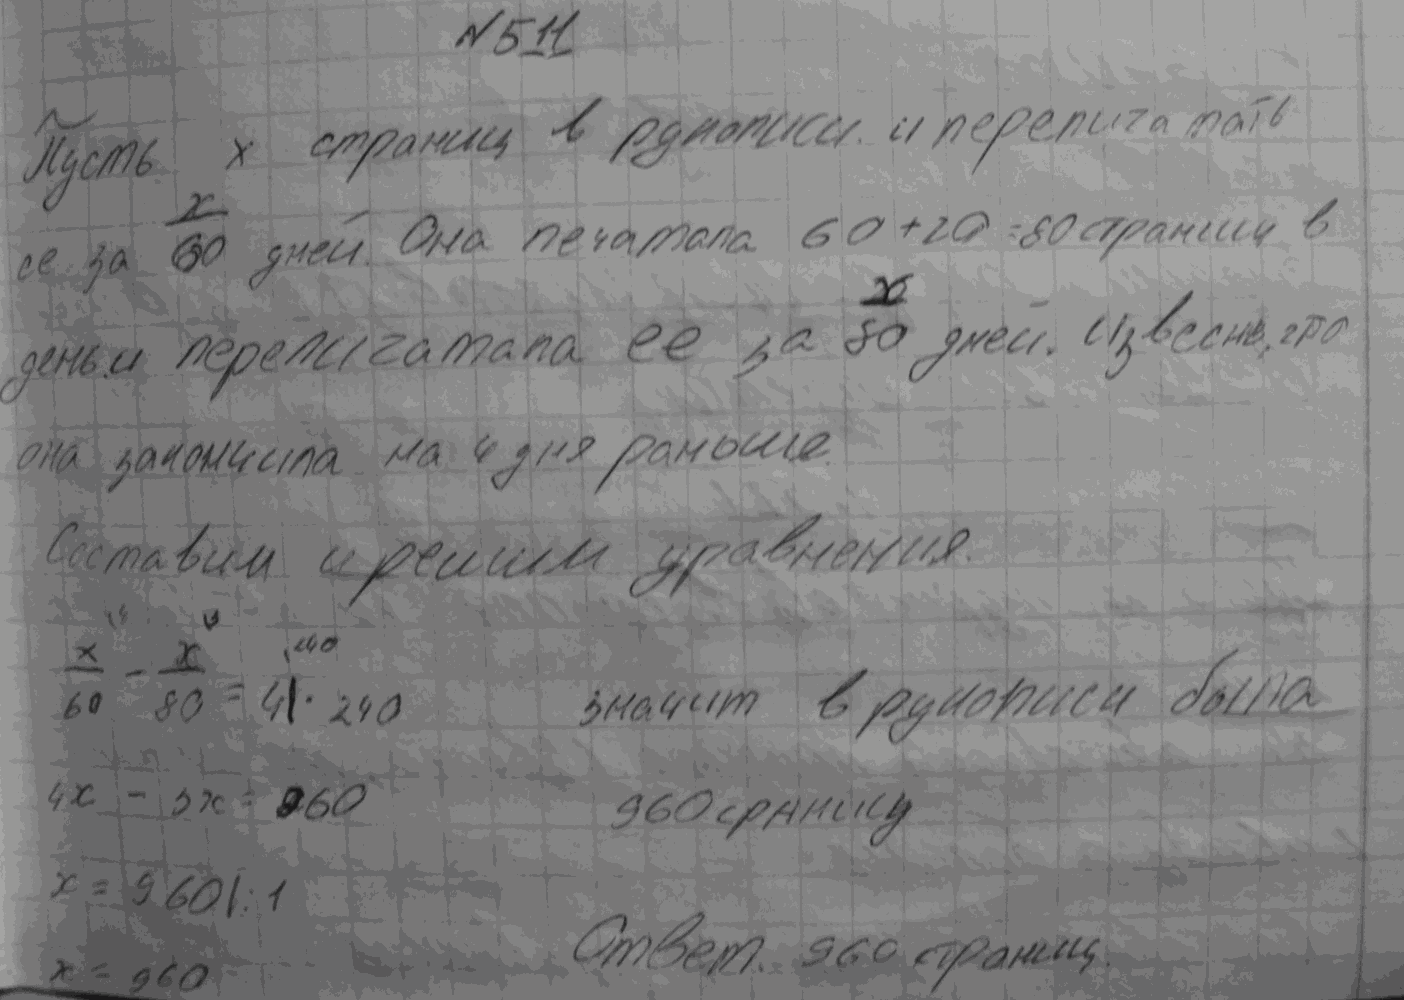 №511
Пусть x страниц в рукописи. и перепичатать
ее за x/60 дней. Она печатала 60+20=80 страниц в
день.и перепичатала ее за x/80 дней. Извесно, что
она закончила на 4 дня раньше.
Составим и решим уравнения.
x/60 - x/80 = 4|· 240
значит в рукописи была
4x - 3x = 960
960 срниц
x = 960|:1
x = 960
Ответ. 960 страниц.